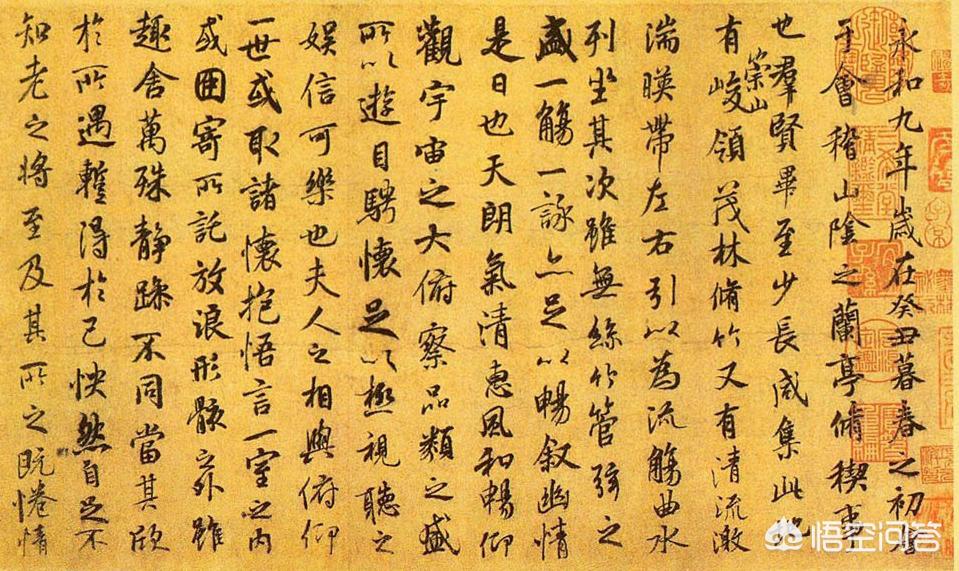 永和九年歲在癸丑暮春之初會
于會稽山陰之蘭亭脩禊事
也羣賢畢至少長咸集此地
有崇山峻領茂林脩竹又有清流激
湍暎帶左右引以為流觴曲水
列坐其次雖無絲竹管弦之
盛一觴一詠亦足以暢叙幽情
是日也天朗氣清惠風和暢仰
觀宇宙之大俯察品類之盛
所以遊目騁懷足以極視聽之
娛信可樂也夫人之相與俯仰
一世或取諸懷抱悟言一室之內
或因寄所託放浪形骸之外雖
趣舍萬殊靜躁不同當其欣
於所遇暫得於己怏然自足不
知老之將至及其所之既惓情
悟空问答